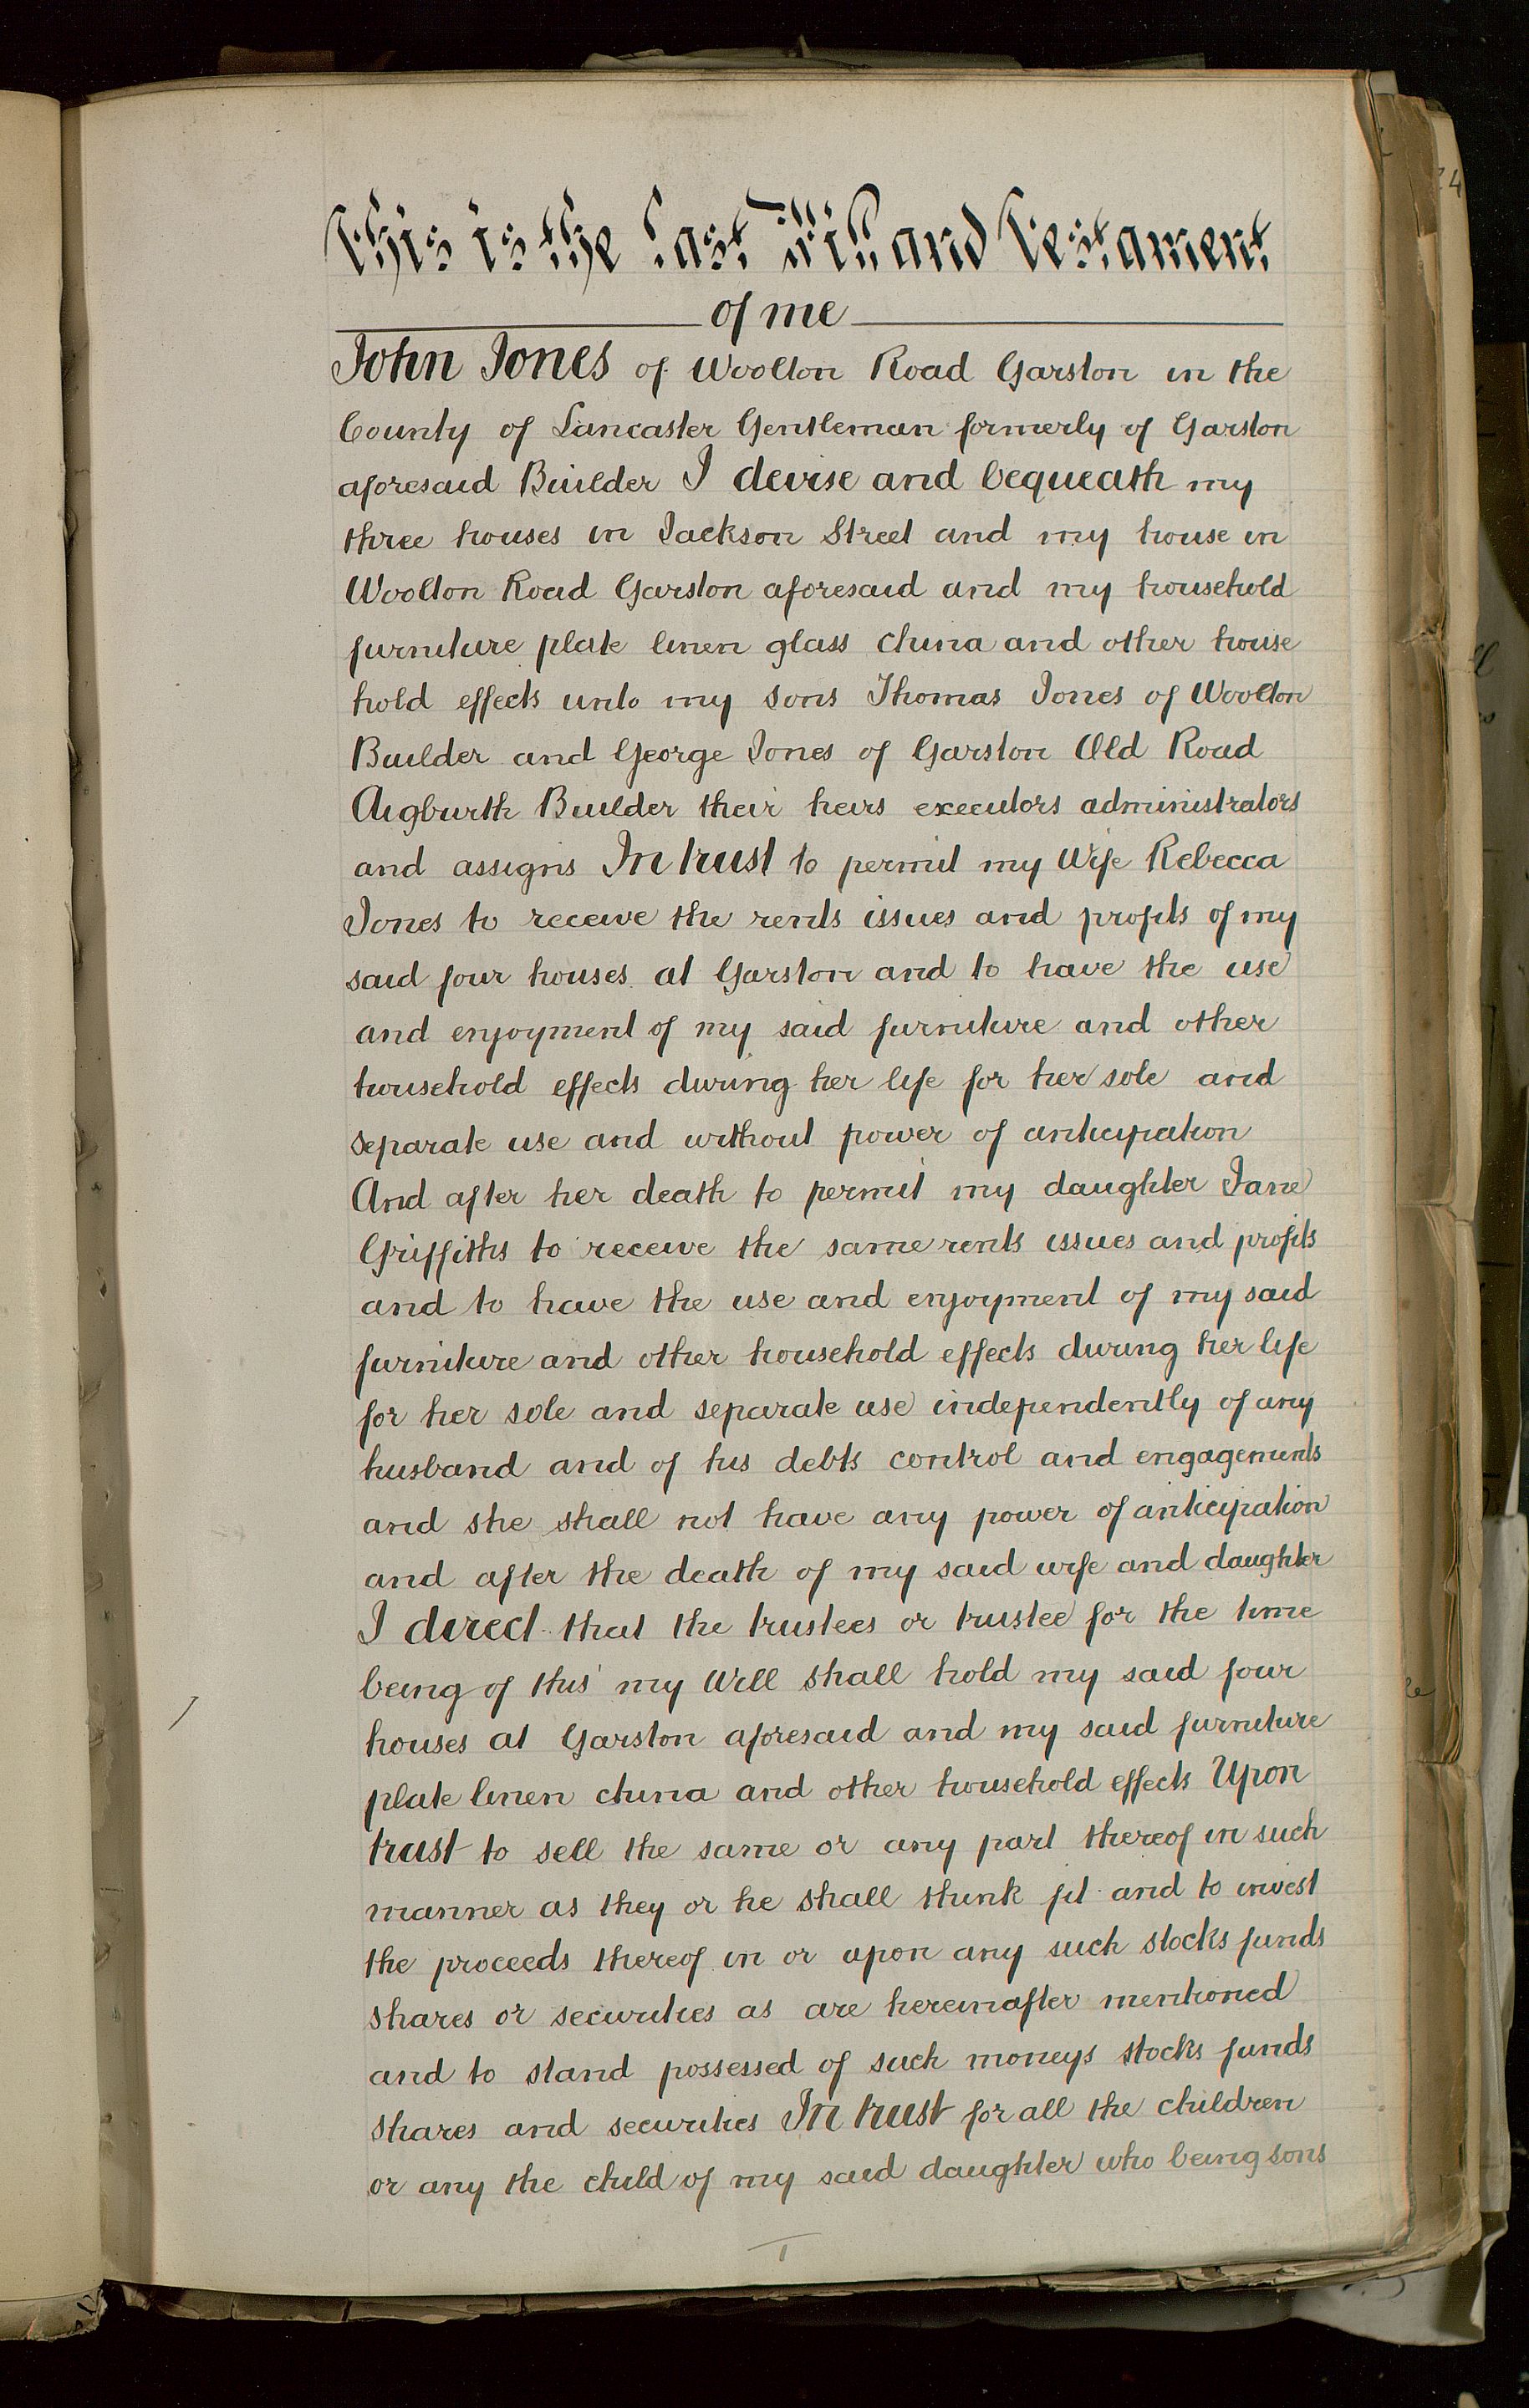 This is the Last Will and Testament
of me
John Jones of Woolton Road Garston in the
County of Lancaster Gentleman formerly of Garston
aforesaid Builder I devise and bequeath my
three houses in Jackson Street and my house in
Woolton Road Garston aforesaid and my household
furniture plate linen glass china and other house
hold effects unto my sons Thomas Jones of Woolton
Builder and George Jones of Garston Old Road
Aigburth Builder their heirs executors administrators
and assigns In trust to permit my Wife Rebecca
Jones to receive the rents issues and profits of my
said four houses at Garston and to have the use
and enjoyment of my said furniture and other
household effects during her life for her sole and
separate use and without power of anticipation
And after her death to permit my daughter Jane
Griffiths to receive the same rents issues and profits
and to have the use and enjoyment of my said
furniture and other household effects during her life
for her sole and separate use independently of any
husband and of his debts control and engagements
and she shall not have any power of anticipation
and after the death of my said wife and daughter
I direct that the trustees or trustee for the time
being of this my Will shall hold my said four
houses at Garston aforesaid and my said furniture
plate linen china and other household effects Upon
trust to sell the same or any part thereof in such
manner as they or he shall think fit and to invest
the proceeds thereof in or upon any such stocks funds
shares or securities as are hereinafter mentioned
and to stand possessed of such moneys stocks funds
shares and securities In trust for all the children
or any the child of my said daughter who being sons